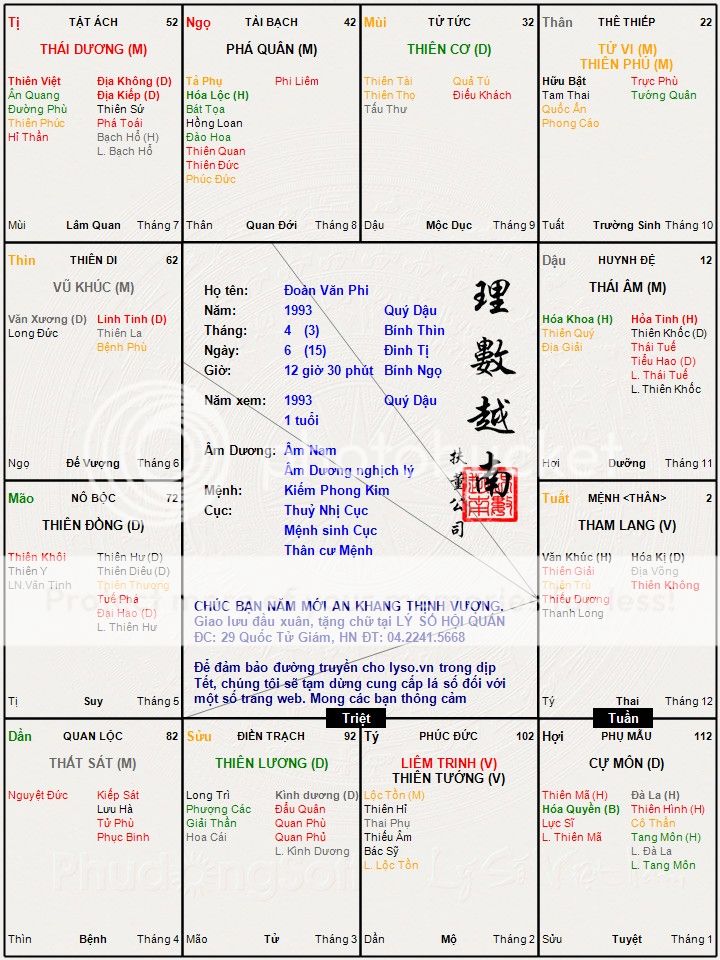 Tị TẬT ÁCH 52
THÁI DƯƠNG (M)
Thiên Việt Địa Không (Đ)
Ân Quang Địa Kiếp (Đ)
Đường Phù Thiên Sứ
Thiên Phúc Phá Toái
Hỉ Thần Bạch Hổ (H)
L. Bạch Hổ
Mùi Lâm Quan Tháng 7
Ngọ TÀI BẠCH 42
PHÁ QUÂN (M)
Tả Phụ Phi Liêm
Hóa Lộc (H)
Bát Tọa
Hồng Loan
Đào Hoa
Thiên Quan
Thiên Đức
Phúc Đức
Thân Quan Đới Tháng 8
Mùi TỬ TỨC 32
THIÊN CƠ (Đ)
Thiên Tài Quả Tú
Thiên Thọ Điếu Khách
Tấu Thư
Dậu Mộc Dục Tháng 9
Thân THÊ THIẾP 22
TỬ VI (M)
THIÊN PHỦ (M)
Hữu Bật Trực Phù
Tam Thai Tướng Quân
Quốc Ấn
Phong Cáo
Tuất Trường Sinh Tháng 10
Thìn THIÊN DI 62
VŨ KHÚC (M)
Văn Xương (Đ) Linh Tinh (Đ)
Long Đức Thiên La
Bệnh Phù
Ngọ Đế Vượng Tháng 6
Họ tên: Đoàn Văn Phi
Năm: 1993 Quý Dậu
Tháng: 4 (3) Bính Thìn
Ngày: 6 (15) Đinh Tị
Giờ: 12 giờ 30 phút Bính Ngọ
Năm xem: 1993 Quý Dậu
1 tuổi
Âm Dương: Âm Nam
Âm Dương nghịch lý
Mệnh: Kiếm Phong Kim
Cục: Thuỷ Nhị Cục
Mệnh sinh Cục
Thân cư Mệnh
理數越南
扶董公司
CHÚC BẠN NĂM MỚI AN KHANG THỊNH VƯỢNG.
Giao lưu đầu xuân, tặng chữ tại LÝ SỐ HỘI QUÁN
ĐC: 29 Quốc Tử Giám, HN ĐT: 04.2241.5668
Để đảm bảo đường truyền cho lyso.vn trong dịp
Tết, chúng tôi sẽ tạm dừng cung cấp lá số đối với
một số trang web. Mong các bạn thông cảm
Dậu HUYNH ĐỆ 12
THÁI ÂM (M)
Hóa Khoa (H) Hỏa Tinh (H)
Thiên Quý Thiên Khốc (Đ)
Địa Giải Thái Tuế
Tiểu Hao (Đ)
L. Thái Tuế
L. Thiên Khốc
Hợi Dưỡng Tháng 11
Mão NÔ BỘC 72
THIÊN ĐỒNG (Đ)
Thiên Khôi Thiên Hư (Đ)
Thiên Y Thiên Diêu (Đ)
LN.Văn Tinh Thiên Thương
Tuế Phá
Đại Hao (Đ)
L. Thiên Hư
Tị Suy Tháng 5
Tuất MỆNH <THÂN> 2
THAM LANG (V)
Văn Khúc (H) Hóa Kị (Đ)
Thiên Giải Địa Võng
Thiên Trù Thiên Không
Thiếu Dương
Thanh Long
Tý Thai Tháng 12
Dần QUAN LỘC 82
THẤT SÁT (M)
Nguyệt Đức Kiếp Sát
Lưu Hà
Tử Phù
Phục Binh
Thìn Bệnh Tháng 4
Triệt
Sửu ĐIỀN TRẠCH 92
THIÊN LƯƠNG (Đ)
Long Trì Kình dương (Đ)
Phượng Các Đẩu Quân
Giải Thần Quan Phù
Hoa Cái Quan Phủ
L. Kình Dương
Mão Tử Tháng 3
Tý PHÚC ĐỨC 102
LIÊM TRINH (V)
THIÊN TƯỚNG (V)
Lộc Tồn (M)
Thiên Hỉ
Thai Phụ
Thiếu Âm
Bác Sỹ
L. Lộc Tồn
Dần Mộ Tháng 2
Tuần
Hợi PHỤ MẪU 112
CỰ MÔN (Đ)
Thiên Mã (H) Đà La (H)
Hóa Quyền (B) Thiên Hình (H)
Lực Sĩ Cô Thần
L. Thiên Mã Tang Môn (H)
L. Đà La
L. Tang Môn
Sửu Tuyệt Tháng 1